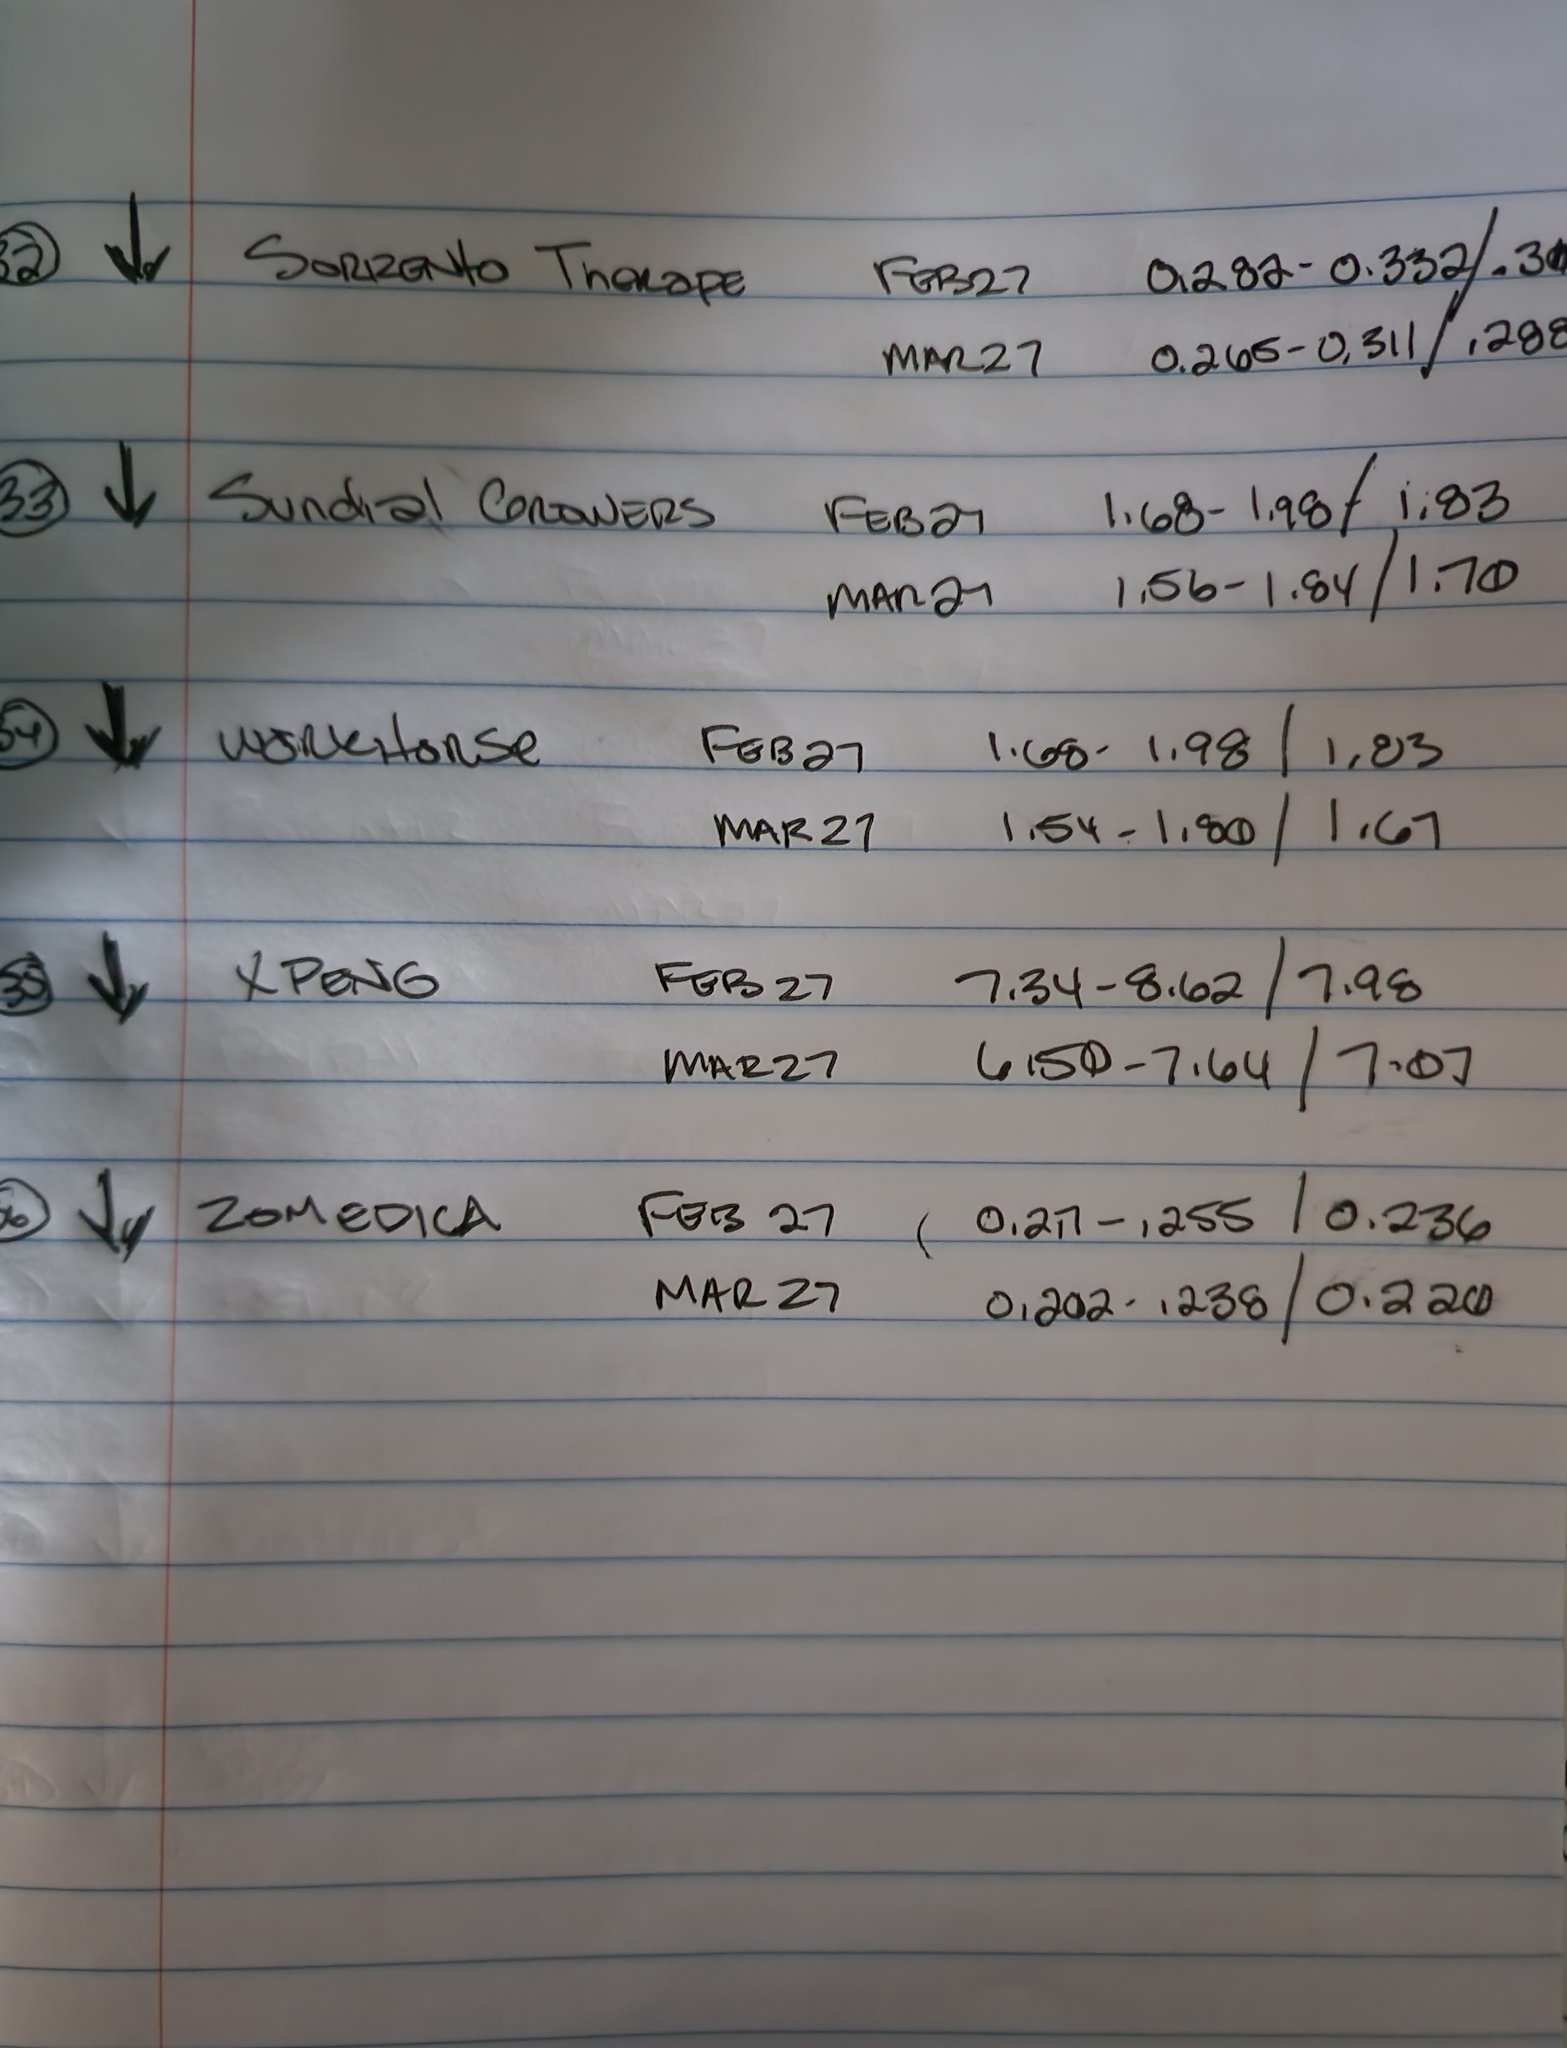 32 ↓ SORRENTO Therape FEB27 0.282-0.332/.30
MAR27 0.265-0.311/.288
33 ↓ Sundial GROWERS FEB27 1.68-1.98/1.83
MAR27 1.56-1.84/1.70
34 ↓ WORKHORSE FEB27 1.68-1.98/1.83
MAR27 1.54-1.80/1.67
35 ↓ XPENG FEB27 7.34-8.62/7.98
MAR27 6.50-7.64/7.07
36 ↓ ZOMEDICA FEB 27 ( 0.217-.255/0.236
MAR 27 0.202-.238/0.220